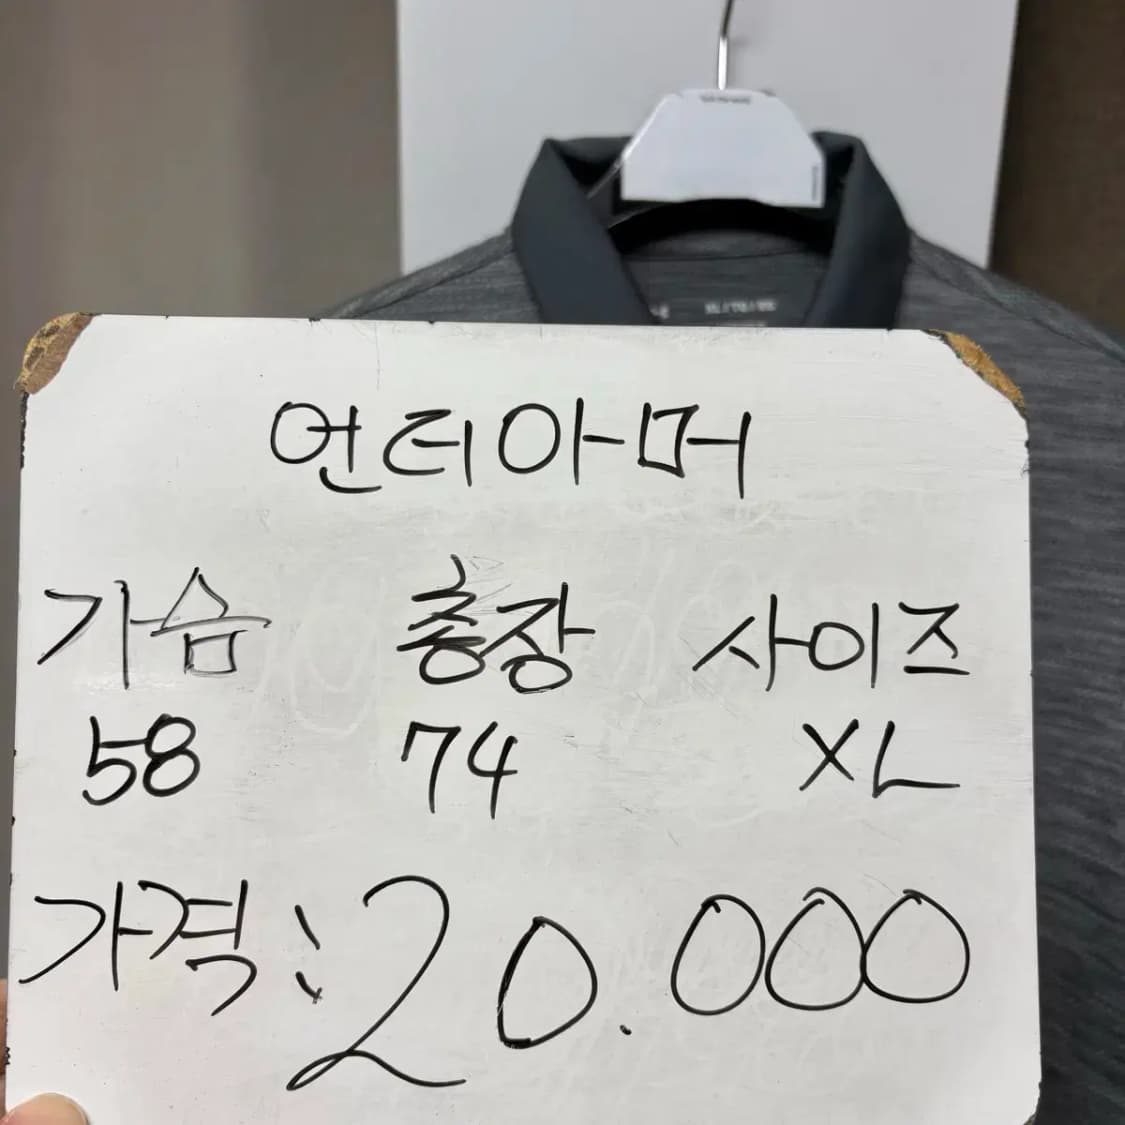 언더아머
가슴 총장 사이즈
58 74 XL
가격: 20.000